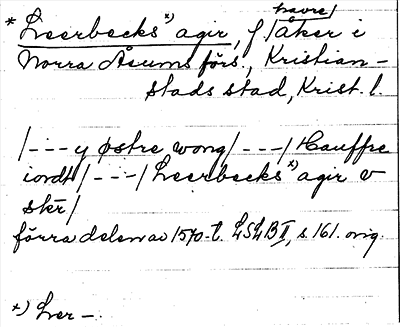 havre/
* Leerbecks *) agir, f /åker i
Norra Åsums förs., Kristian-
stads stad, Krist. l.
/---y østre wong/---/ Hauffre
iordt/---/ Leerbecks *) agir v
skr/
förra delen av 1570-t. LSLB II, s 161. orig.
*) Lær -.